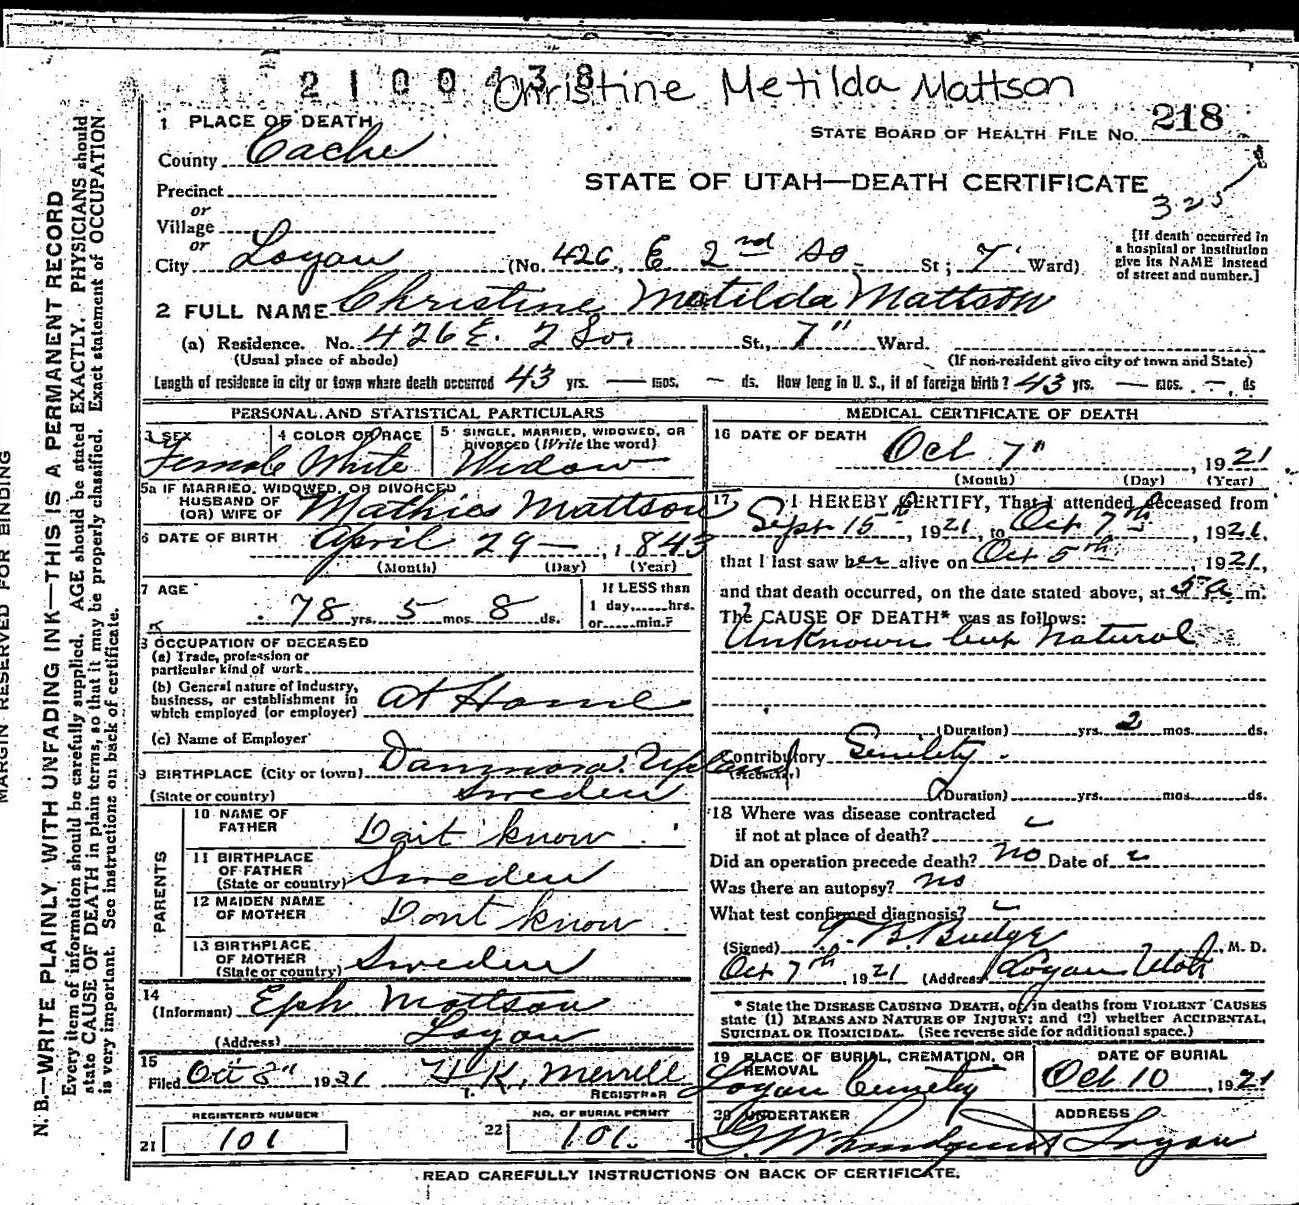 2100438
Christine Metilda Mattson
1 PLACE OF DEATH
STATE BOARD OF HEALTH FILE NO. 218
County Cache
STATE OF UTAH—DEATH CERTIFICATE
325
Precinct
or
Village
or
City Logan (No. 426, E 2nd So St; 7 Ward)
[If death occurred in a hospital or institution give its NAME instead of street and number.]
2 FULL NAME Christine Matilda Mattson
(a) Residence. No. 426 E. 2 So. St., 7" Ward.
(Usual place of abode) (If non-resident give city of town and State)
Length of residence in city or town where death occurred 43 yrs. — mos. — ds. How long in U. S., if of foreign birth? 43 yrs. — mos. — ds
PERSONAL AND STATISTICAL PARTICULARS
3 SEX Female
4 COLOR OR RACE White
5 SINGLE, MARRIED, WIDOWED, OR DIVORCED (Write the word) Widow
5a IF MARRIED, WIDOWED, OR DIVORCED
HUSBAND OF
(OR) WIFE OF Mathies Mattson
6 DATE OF BIRTH April 29 —, 1843
(Month) (Day) (Year)
7 AGE 78 yrs. 5 mos. 8 ds.
If LESS than
1 day,......hrs.
or......min.?
8 OCCUPATION OF DECEASED
(a) Trade, profession or
particular kind of work
(b) General nature of Industry,
business, or establishment in
which employed (or employer) At Home
(c) Name of Employer
9 BIRTHPLACE (City or town) Dannmora. Upland
(State or country) Sweden
PARENTS
10 NAME OF FATHER Dont know
11 BIRTHPLACE OF FATHER (State or country) Sweden
12 MAIDEN NAME OF MOTHER Dont know
13 BIRTHPLACE OF MOTHER (State or country) Sweden
14
(Informant) Eph Mattson
(Address) Logan
15
Filed Oct 8" 1921 H K. Merrill
REGISTRAR
REGISTERED NUMBER
21 101
NO. OF BURIAL PERMIT
22 101.
MEDICAL CERTIFICATE OF DEATH
16 DATE OF DEATH Oct 7", 1921
(Month) (Day) (Year)
17 I HEREBY CERTIFY, That I attended deceased from
Sept 15th, 1921, to Oct 7th, 1921.
that I last saw her alive on Oct 5th, 1921,
and that death occurred, on the date stated above, at 5 a m.
The CAUSE OF DEATH* was as follows:
Unknown but natural
(Duration) yrs. 2 mos. ds.
Contributory Senility.
(Duration) yrs. mos. ds.
18 Where was disease contracted
if not at place of death?
Did an operation precede death? no Date of
Was there an autopsy? no
What test confirmed diagnosis?
(Signed) T. B. Budge M. D.
Oct 7th, 1921 (Address) Logan Utah
* State the DISEASE CAUSING DEATH, or in deaths from VIOLENT CAUSES
state (1) MEANS AND NATURE OF INJURY; and (2) whether ACCIDENTAL,
SUICIDAL OR HOMICIDAL. (See reverse side for additional space.)
19 PLACE OF BURIAL, CREMATION, OR REMOVAL
Logan Cemetery
DATE OF BURIAL
Oct 10, 1921
20 UNDERTAKER
ADDRESS
Logan
READ CAREFULLY INSTRUCTIONS ON BACK OF CERTIFICATE.
MARGIN RESERVED FOR BINDING
N. B.—WRITE PLAINLY WITH UNFADING INK—THIS IS A PERMANENT RECORD
Every item of information should be carefully supplied. AGE should be stated EXACTLY. PHYSICIANS should
state CAUSE OF DEATH in plain terms, so that it may be properly classified. Exact statement of OCCUPATION
is very important. See instructions on back of certificate.